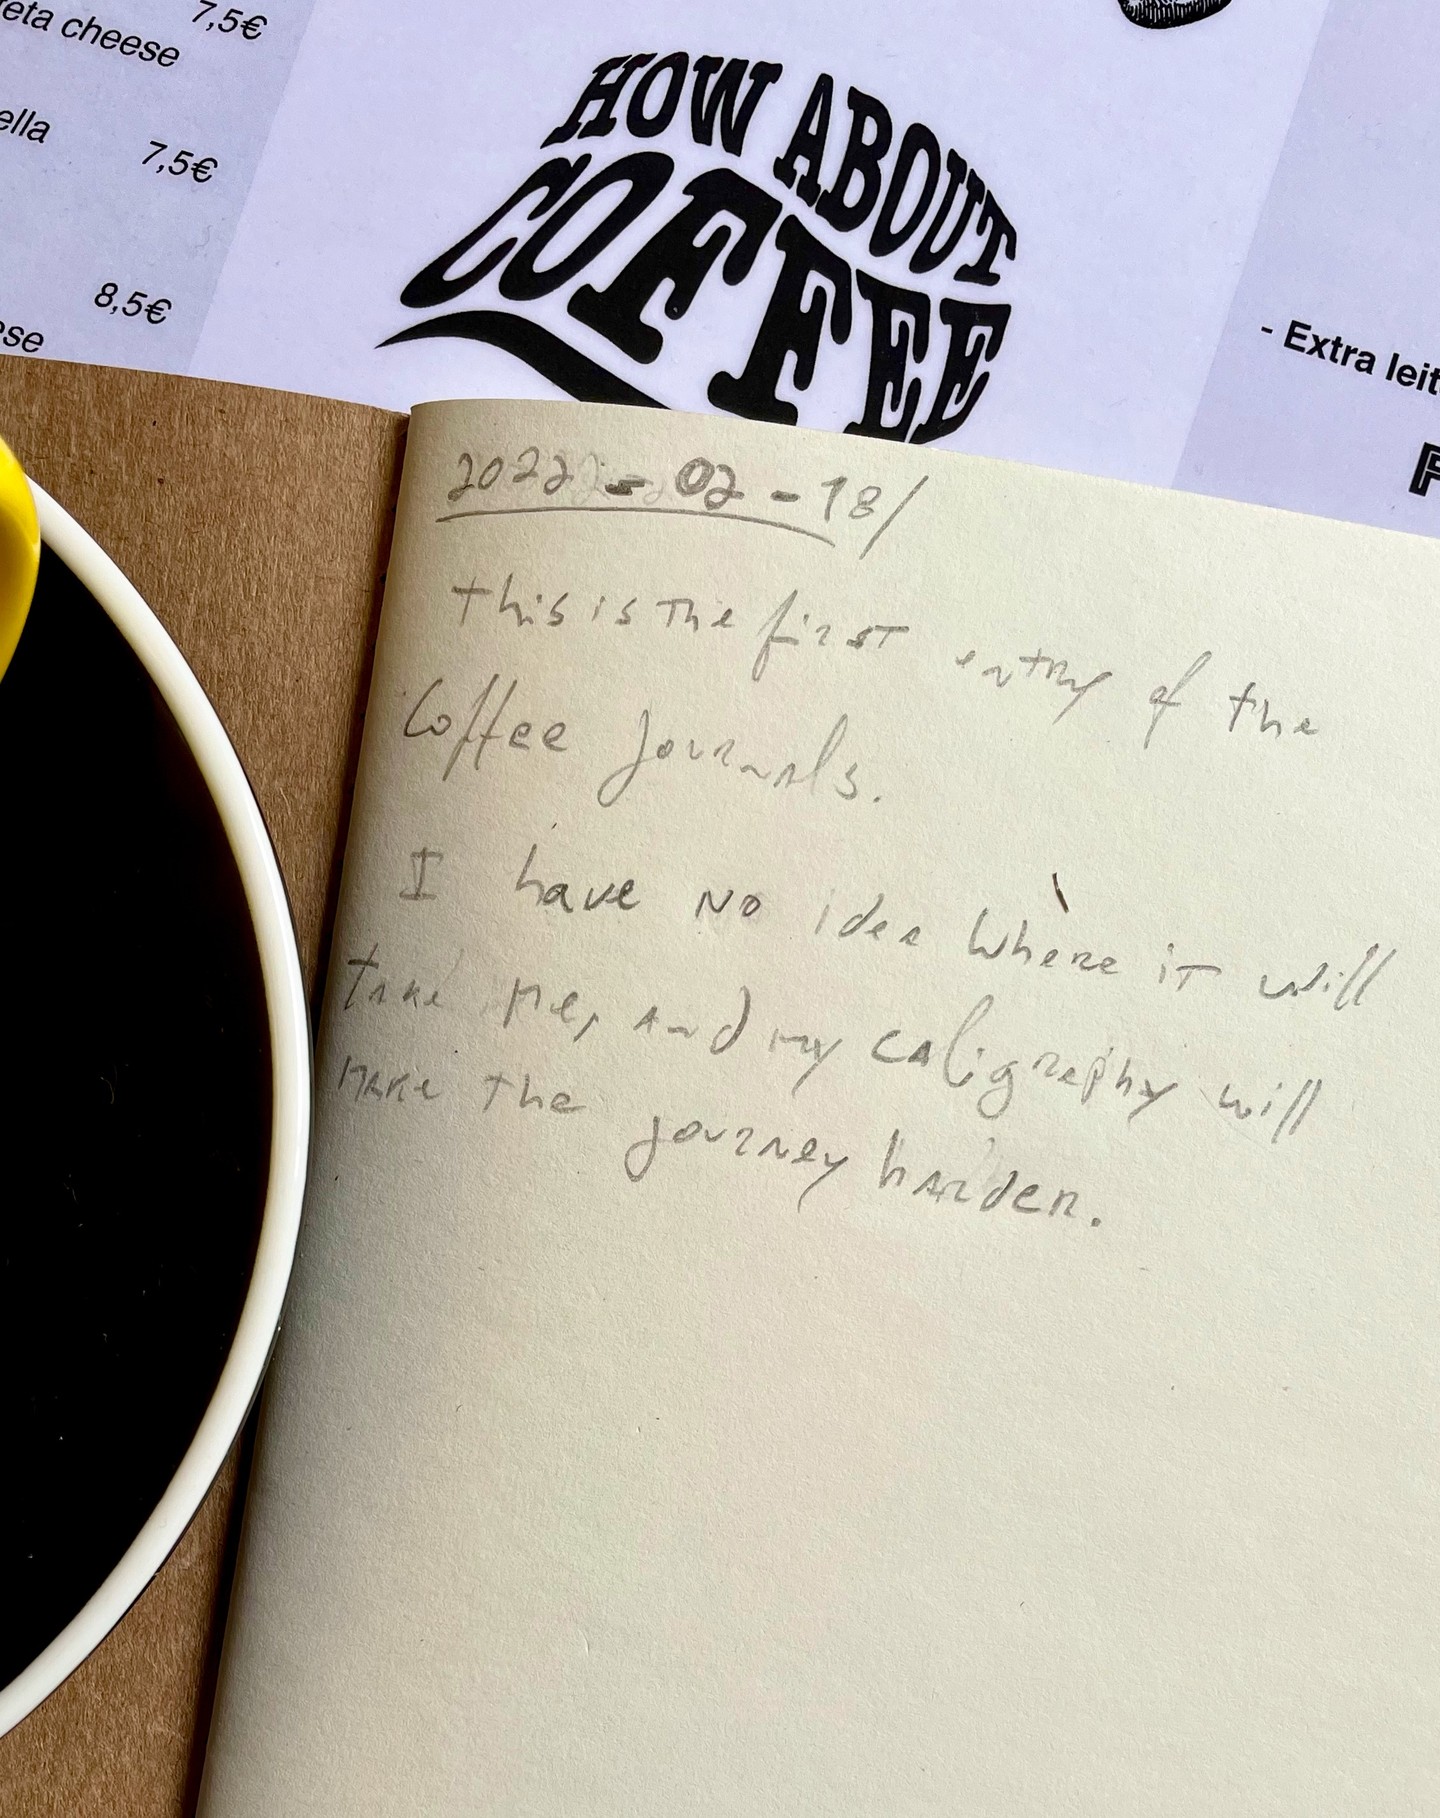 7,5€
eta cheese
ella
7,5€
8,5€
se
HOW ABOUT
COFFEE
- Extra leit
F
2022-02-18/
This is the first entry of the
Coffee journals.
I have no idea where it will
take me, and my caligraphy will
make the journey harder.